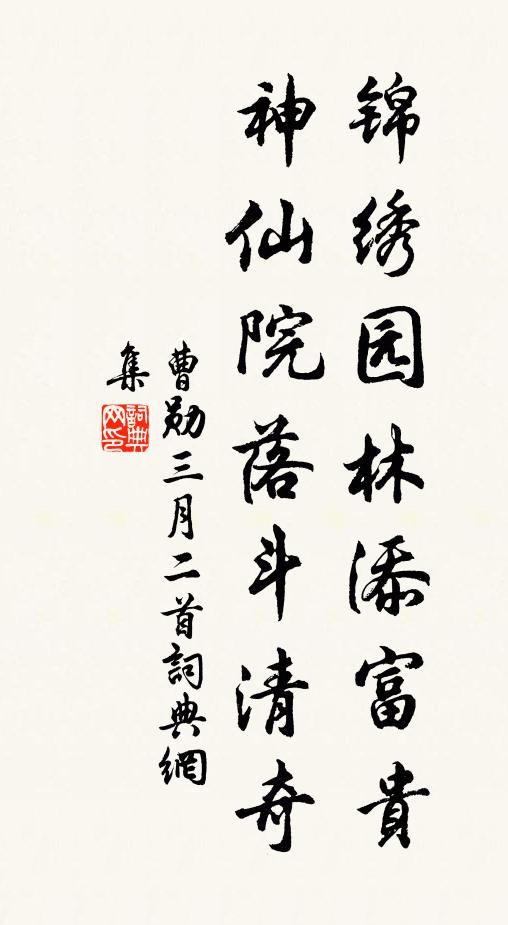 锦绣园林添富貴
神仙院落斗清奇
曹勛三月二首詞典網
集
詞典网印